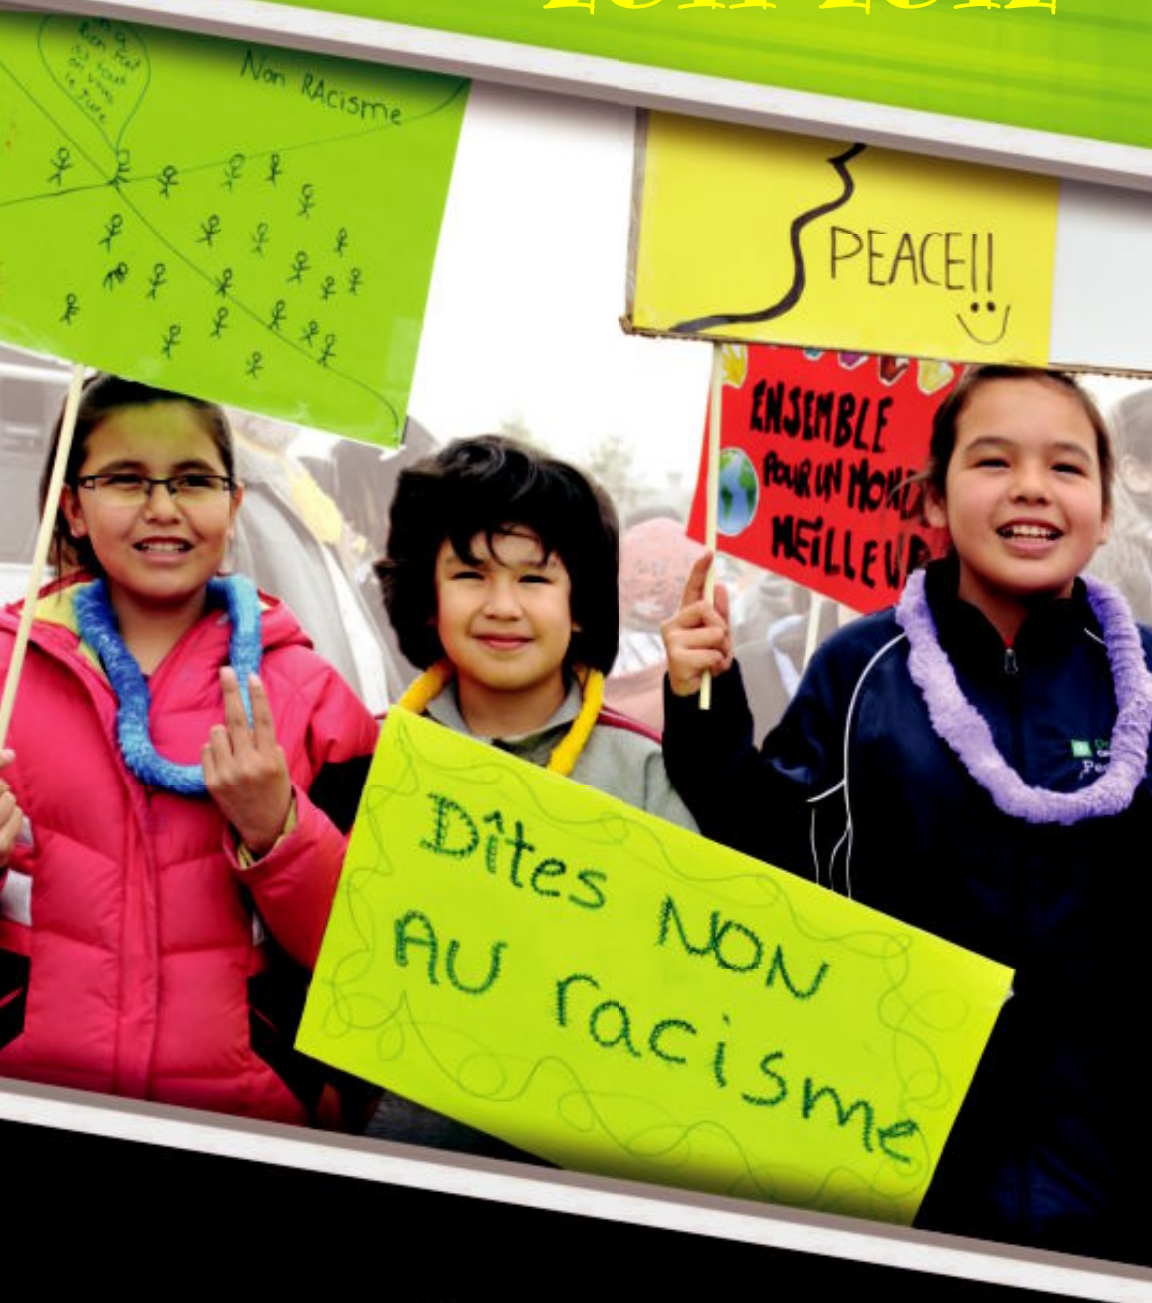 2011-2012
Non RAcisme
PEACE!!
ENSEMBLE
POUR UN MOND
MEILLEUR
Dîtes NON
AU racisme